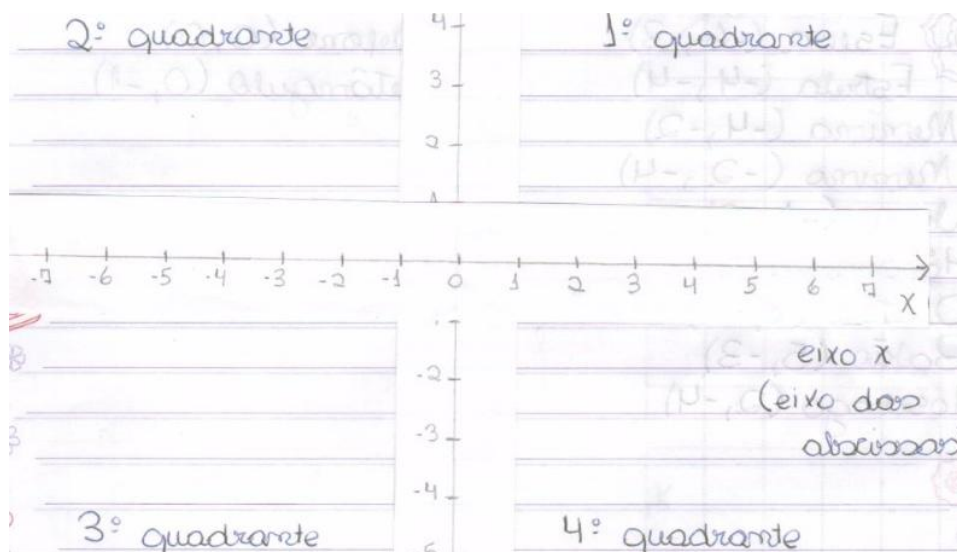 2º quadrante
4
1º quadrante
3
2
1
-7 -6 -5 -4 -3 -2 -1 0 1 2 3 4 5 6 7
x
-2
eixo x
(eixo das
abscissas
-3
-4
3º quadrante
4º quadrante